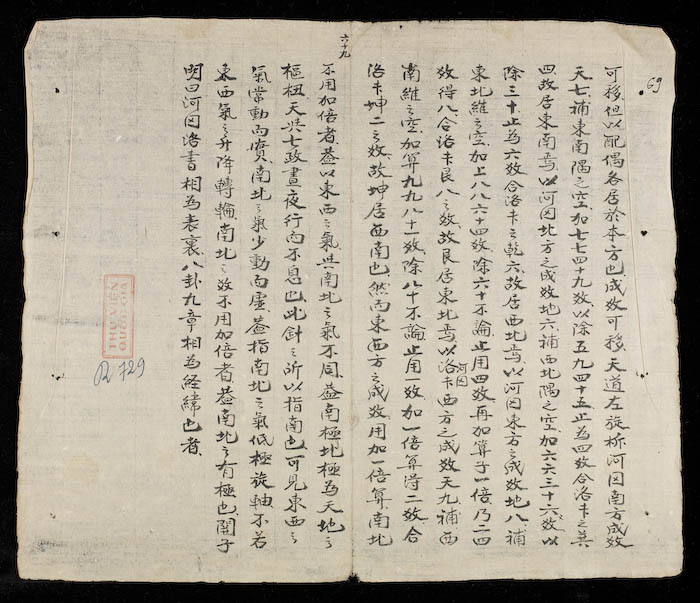 69
可移但以配偶各居於本方也成数可移天道左旋桥河図南方成数
天七補東南隅之空加七七四十九数以除五九四十五止為四数合洛书之巽
四故居東南焉以河図北方之成数地六補西北隅之空加六六三十六数以
除三十止為六数合洛书之乾六故居西北焉以河図東方之成数地八補
東北維之空加上八八六十四数除六十不論止用四数再加算子一倍乃二四
数得八合洛书艮八之数故艮居東北焉以洛书西方之成数天九補西
河図
南維之空加算九九八十一数除八十不論止用一数加一倍算得二数合
洛书坤二之数故坤居西南也然而東西方之成数用加一倍算南北
六十九
不用加倍者蓋以東西之氣与南北之氣不同蓋南極北極為天地之
樞杻天与七政晝夜行而不息也此針之所以指南也可見東西之
氣常動而實南北之氣少動而虛蓋指南北之氣低極旋軸不若
東西氣之升降轉輪南北之数不用加倍者蓋南北之有極也關子
明曰河図洛書相為表裏八卦九章相為経緯也者
THƯ VIỆN
QUỐC GIA
R 729